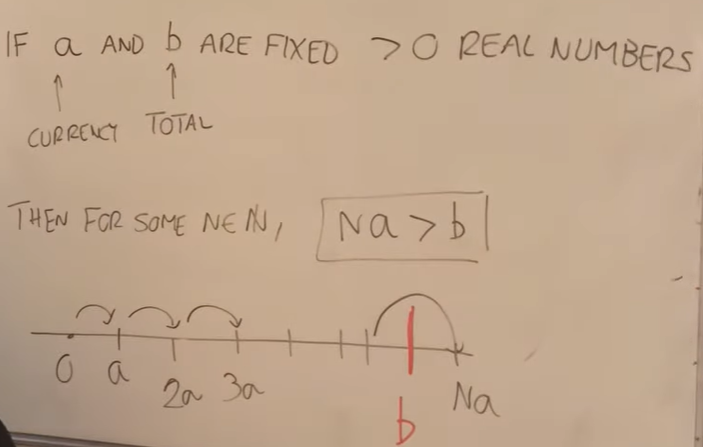 IF a AND b ARE FIXED > 0 REAL NUMBERS
↑ ↑
CURRENCY TOTAL
THEN FOR SOME N∈ℕ, Na > b
0 a 2a 3a b Na